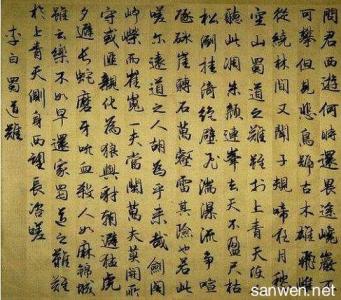 問君西遊何時還畏途巉巖
可攀但見悲鳥號古木雄飛
從繞林間又聞子規啼夜月愁
空山蜀道之難難於上青天使
聽此凋朱顏連峯去天不盈尺枯
松倒挂倚絕壁飛湍瀑流爭喧
豗砯崖轉石萬壑雷其險也若此
嗟爾遠道之人胡為乎來哉劍閣
崢嶸而崔嵬一夫當關萬夫莫開所
守或匪親化為狼與豺朝避猛虎
夕避長蛇磨牙吮血殺人如麻錦城
雖云樂不如早還家蜀道之難難
於上青天側身西望長咨嗟
李白蜀道難
sanwen.net